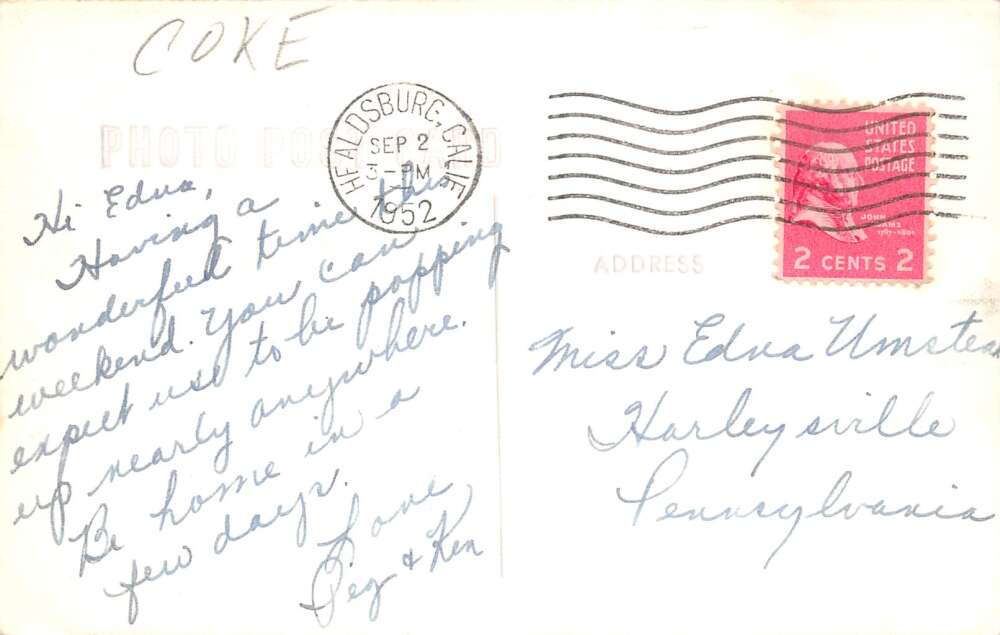 COKE
PHOTO POST CARD
HEALDSBURG, CALIF.
SEP 2
3-PM
1952
UNITED
STATES
POSTAGE
JOHN
ADAMS
1797-1801
2 CENTS 2
ADDRESS
Hi Edna,
Having a
wonderful time this
weekend. You can
expect us to be popping
up nearly anywhere.
Be home in a
few days.
Love
Peg & Ken
Miss Edna Umstead
Harleysville
Pennsylvania